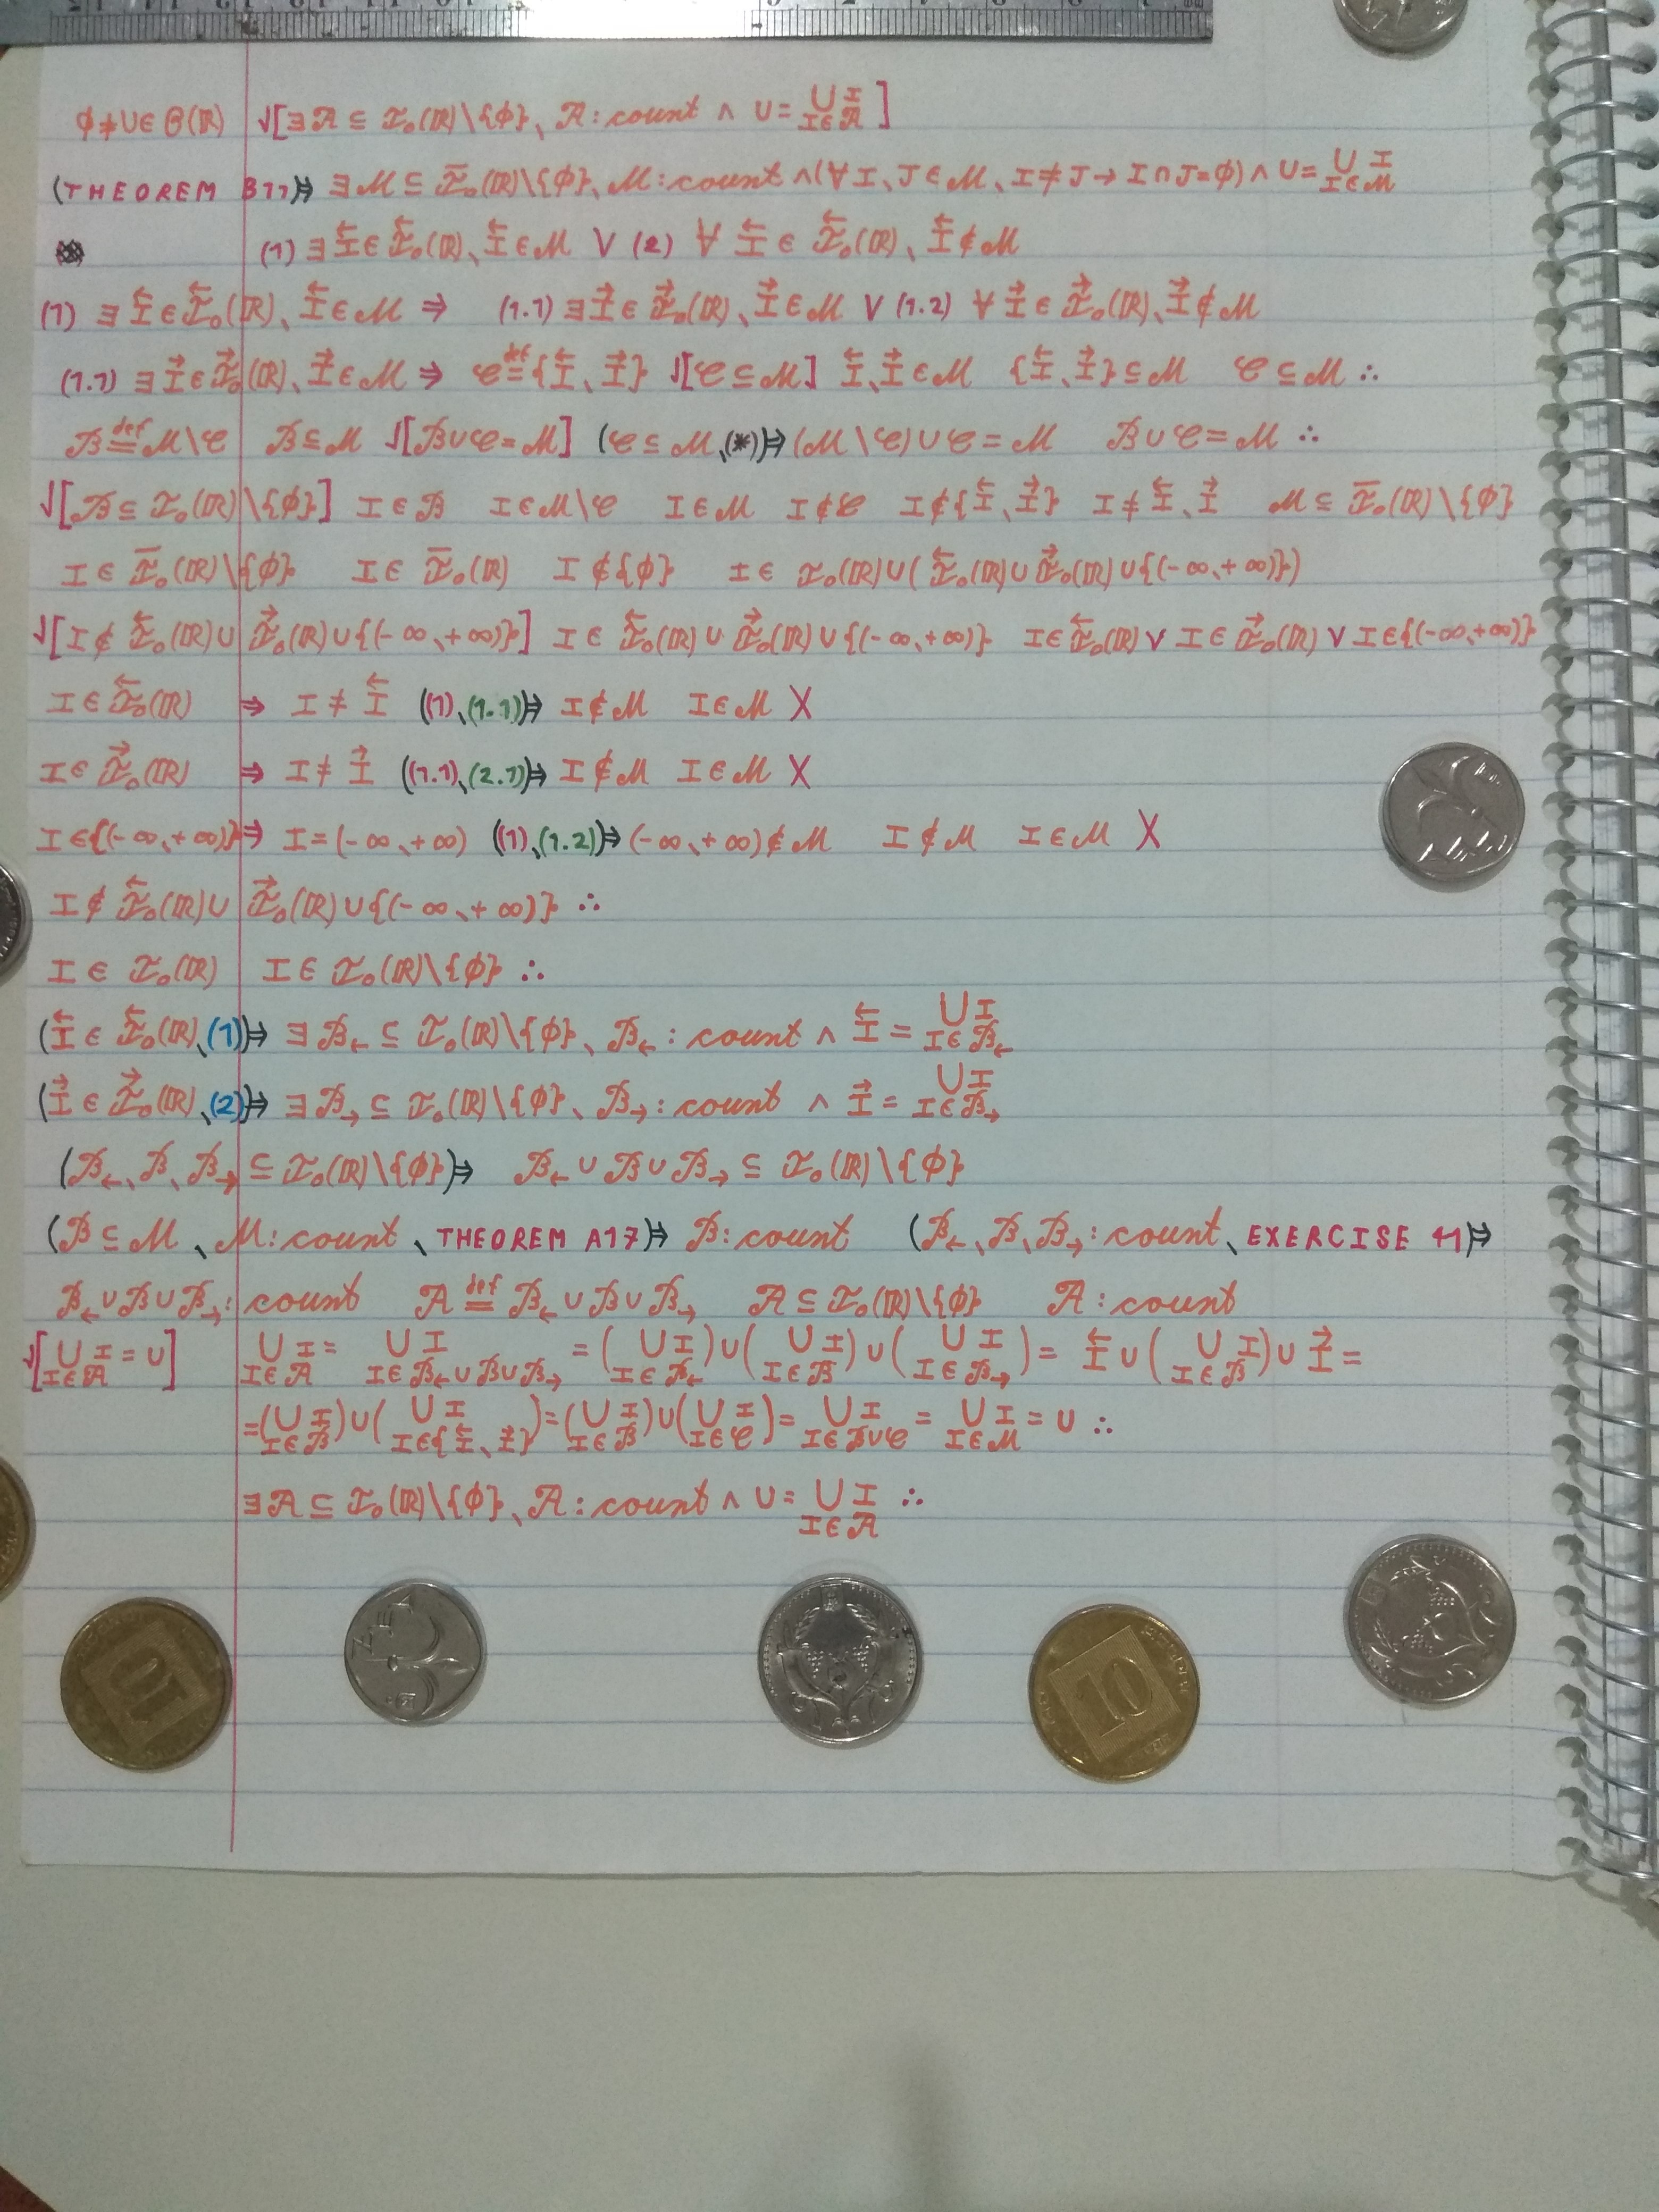 ∅≠U∈Θ(ℝ) √[∃𝒜 ⊆ ℐ₀(ℝ)\{∅}、𝒜: count ∧ U = ⋃_{I∈𝒜} I ]
(THEOREM B11)⇒ ∃ℳ ⊆ ℐ̄₀(ℝ)\{∅}、ℳ: count ∧(∀I、J∈ℳ、I≠J → I∩J=∅) ∧ U = ⋃_{I∈ℳ} I
(1) ∃I⃖ ∈ ℐ⃖₀(ℝ)、I⃖ ∈ ℳ ∨ (2) ∀ I⃖ ∈ ℐ⃖₀(ℝ)、I⃖ ∉ ℳ
(1) ∃ I⃖ ∈ ℐ⃖₀(ℝ)、I⃖ ∈ ℳ ⇒ (1.1) ∃I⃗ ∈ ℐ⃗₀(ℝ)、I⃗ ∈ ℳ ∨ (1.2) ∀ I⃗ ∈ ℐ⃗₀(ℝ)、I⃗ ∉ ℳ
(1.1) ∃ I⃗ ∈ ℐ⃗₀(ℝ)、I⃗ ∈ ℳ ⇒ 𝒞 ≝ {I⃖、I⃗} √[𝒞 ⊆ ℳ] I⃖、I⃗ ∈ ℳ {I⃖、I⃗} ⊆ ℳ 𝒞 ⊆ ℳ ∴
ℬ ≝ ℳ\𝒞 ℬ ⊆ ℳ √[ℬ∪𝒞 = ℳ] (𝒞 ⊆ ℳ、(*))⇒ (ℳ\𝒞)∪𝒞 = ℳ ℬ∪𝒞 = ℳ ∴
√[ℬ ⊆ ℐ₀(ℝ)\{∅}] I∈ℬ I∈ℳ\𝒞 I∈ℳ I∉𝒞 I∉{I⃖、I⃗} I≠I⃖、I⃗ ℳ ⊆ ℐ̄₀(ℝ)\{∅}
I∈ ℐ̄₀(ℝ)\{∅} I∈ ℐ̄₀(ℝ) I∉{∅} I∈ ℐ₀(ℝ)∪(ℐ⃖₀(ℝ)∪ℐ⃗₀(ℝ)∪{(-∞、+∞)})
√[I∉ ℐ⃖₀(ℝ)∪ℐ⃗₀(ℝ)∪{(-∞、+∞)}] I∈ ℐ⃖₀(ℝ)∪ℐ⃗₀(ℝ)∪{(-∞、+∞)} I∈ℐ⃖₀(ℝ) ∨ I∈ℐ⃗₀(ℝ) ∨ I∈{(-∞、+∞)}
I∈ℐ⃖₀(ℝ) ⇒ I≠I⃖ ((1)、(1.1))⇒ I∉ℳ I∈ℳ X
I∈ℐ⃗₀(ℝ) ⇒ I≠I⃗ ((1.1)、(2.1))⇒ I∉ℳ I∈ℳ X
I∈{(-∞、+∞)} ⇒ I=(-∞、+∞) ((1)、(1.2))⇒ (-∞、+∞)∉ℳ I∉ℳ I∈ℳ X
I∉ ℐ⃖₀(ℝ)∪ℐ⃗₀(ℝ)∪{(-∞、+∞)} ∴
I∈ ℐ₀(ℝ) I∈ ℐ₀(ℝ)\{∅} ∴
(I⃖ ∈ ℐ⃖₀(ℝ)、(1))⇒ ∃ℬ← ⊆ ℐ₀(ℝ)\{∅}、ℬ←: count ∧ I⃖ = ⋃_{I∈ℬ←} I
(I⃗ ∈ ℐ⃗₀(ℝ)、(2))⇒ ∃ℬ→ ⊆ ℐ₀(ℝ)\{∅}、ℬ→: count ∧ I⃗ = ⋃_{I∈ℬ→} I
(ℬ←、ℬ、ℬ→ ⊆ ℐ₀(ℝ)\{∅})⇒ ℬ←∪ℬ∪ℬ→ ⊆ ℐ₀(ℝ)\{∅}
(ℬ ⊆ ℳ、ℳ: count、THEOREM A17)⇒ ℬ: count (ℬ←、ℬ、ℬ→: count、EXERCISE 41)⇒
ℬ←∪ℬ∪ℬ→: count 𝒜 ≝ ℬ←∪ℬ∪ℬ→ 𝒜 ⊆ ℐ₀(ℝ)\{∅} 𝒜: count
√[⋃_{I∈𝒜} I = U] ⋃_{I∈𝒜} I = ⋃_{I∈ℬ←∪ℬ∪ℬ→} I = (⋃_{I∈ℬ←} I)∪(⋃_{I∈ℬ} I)∪(⋃_{I∈ℬ→} I) = I⃖∪(⋃_{I∈ℬ} I)∪I⃗ =
=(⋃_{I∈ℬ} I)∪(⋃_{I∈{I⃖、I⃗}} I)=(⋃_{I∈ℬ} I)∪(⋃_{I∈𝒞} I)= ⋃_{I∈ℬ∪𝒞} I = ⋃_{I∈ℳ} I = U ∴
∃𝒜 ⊆ ℐ₀(ℝ)\{∅}、𝒜: count ∧ U = ⋃_{I∈𝒜} I ∴
10
10